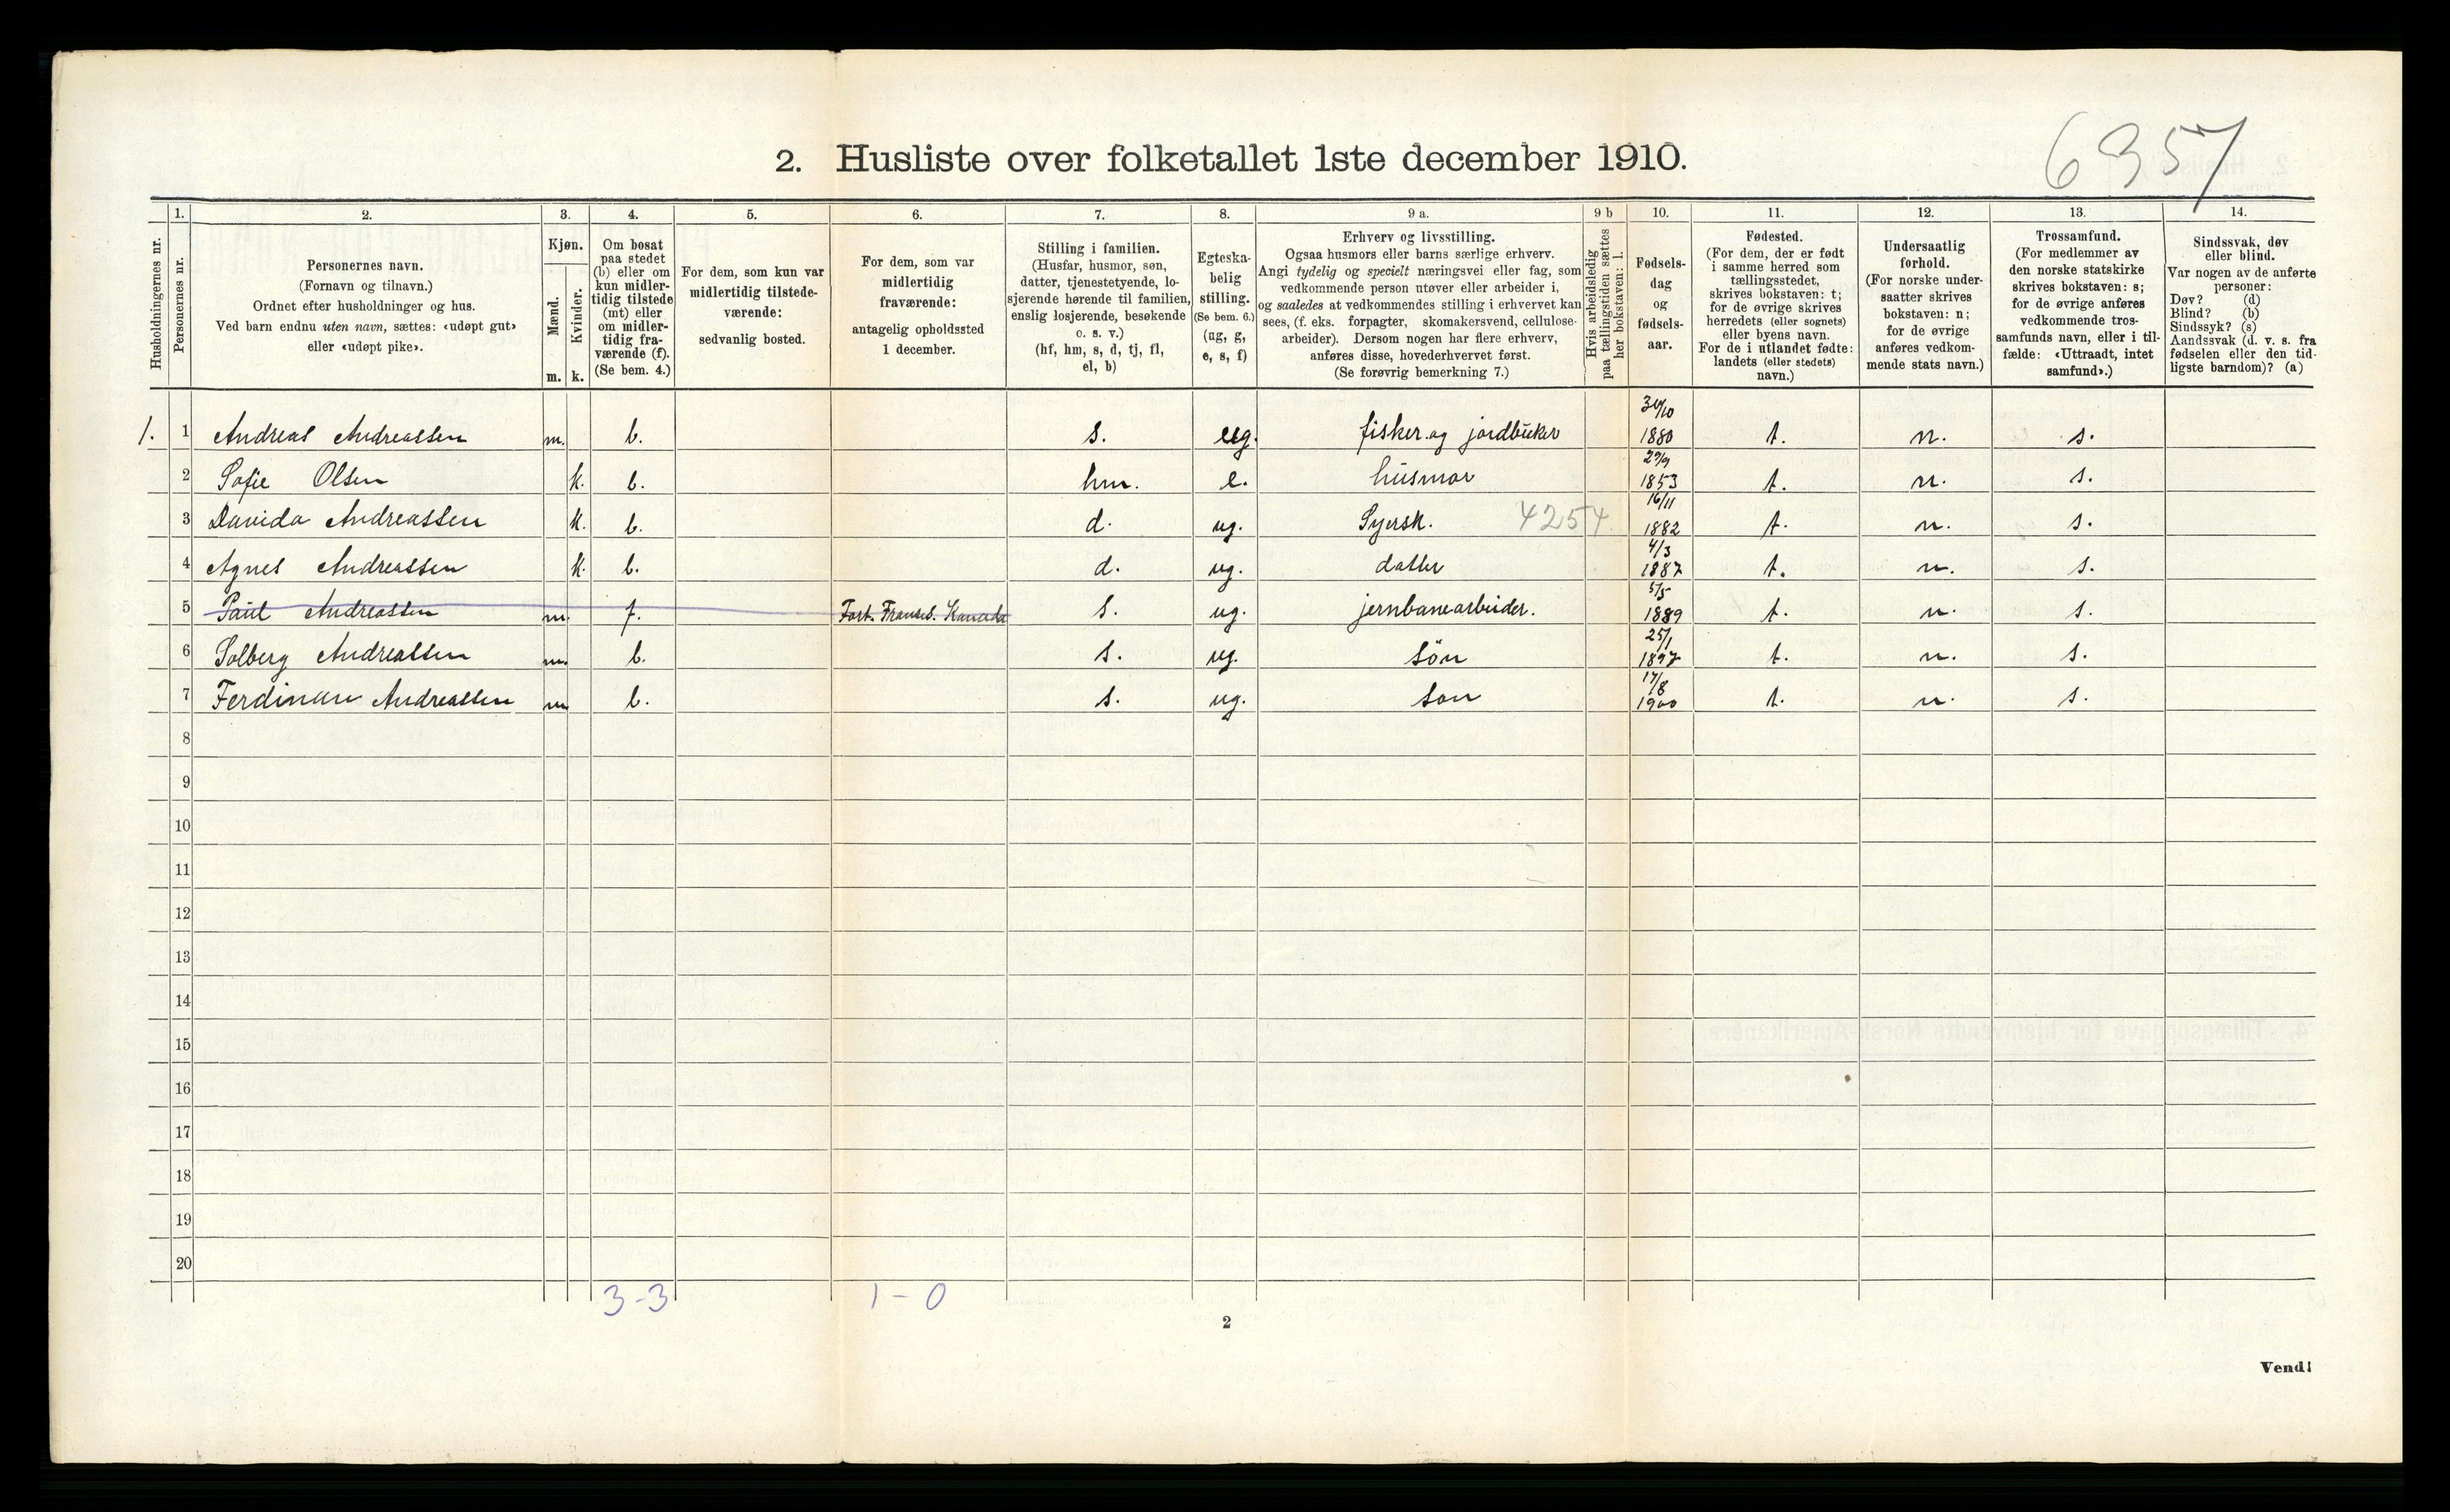 6957
2. Husliste over folketallet 1ste december 1910.
Husholdningernes nr.
1. Personernes nr.
2. Personernes navn.
(Fornavn og tilnavn.)
Ordnet efter husholdninger og hus.
Ved barn endnu uten navn, sættes: «udøpt gut»
eller «udøpt pike».
3. Kjøn.
Mænd. m.
Kvinder. k.
4. Om bosat
paa stedet
(b) eller om
kun midler-
tidig tilstede
(mt) eller
om midler-
tidig fra-
værende (f).
(Se bem. 4.)
5. For dem, som kun var
midlertidig tilstede-
værende:
sedvanlig bosted.
6. For dem, som var
midlertidig
fraværende:
antagelig opholdssted
1 december.
7. Stilling i familien.
(Husfar, husmor, søn,
datter, tjenestetyende, lo-
sjerende hørende til familien,
enslig losjerende, besøkende
o. s. v.)
(hf, hm, s, d, tj, fl,
el, b)
8. Egteska-
belig
stilling.
(Se bem. 6.)
(ug, g,
e, s, f)
9 a. Erhverv og livsstilling.
Ogsaa husmors eller barns særlige erhverv.
Angi tydelig og specielt næringsvei eller fag, som
vedkommende person utøver eller arbeider i,
og saaledes at vedkommendes stilling i erhvervet kan
sees, (f. eks. forpagter, skomakersvend, cellulose-
arbeider). Dersom nogen har flere erhverv,
anføres disse, hovederhvervet først.
(Se forøvrig bemerkning 7.)
9 b Hvis arbeidsledig
paa tællingstiden sættes
her bokstaven: l.
10. Fødsels-
dag
og
fødsels-
aar.
11. Fødested.
(For dem, der er født
i samme herred som
tællingsstedet,
skrives bokstaven: t;
for de øvrige skrives
herredets (eller sognets)
eller byens navn.
For de i utlandet fødte:
landets (eller stedets)
navn.)
12. Undersaatlig
forhold.
(For norske under-
saatter skrives
bokstaven: n;
for de øvrige
anføres vedkom-
mende stats navn.)
13. Trossamfund.
(For medlemmer av
den norske statskirke
skrives bokstaven: s;
for de øvrige anføres
vedkommende tros-
samfunds navn, eller i til-
fælde: «Uttraadt, intet
samfund».)
14. Sindssvak, døv
eller blind.
Var nogen av de anførte
personer:
Døv? (d)
Blind? (b)
Sindssyk? (s)
Aandssvak (d. v. s. fra
fødselen eller den tid-
ligste barndom)? (a)
1. 1 Andreas Andreassen m. b. s. ug. fisker og jordbuker 30/10 1880 t. n. s.
2 Sofie Olsen k. b. hm. e. husmor 29/9 1853 t. n. s.
3 Davida Andreassen k. b. d. ug. Syersk. 4254 16/11 1882 t. n. s.
4 Agnes Andreassen k. b. d. ug. datter 4/3 1887 t. n. s.
5 Paul Andreassen m. f. Fort. Franses. Kanada s. ug. jernbanearbeider. 5/5 1889 t. n. s.
6 Solberg Andreassen m. b. s. ug. sön 25/1 1897 t. n. s.
7 Ferdinan Andreassen m b. s. ug. son 17/8 1900 t. n. s.
8
9
10
11
12
13
14
15
16
17
18
19
20
3-3 1-0
2
Vend!